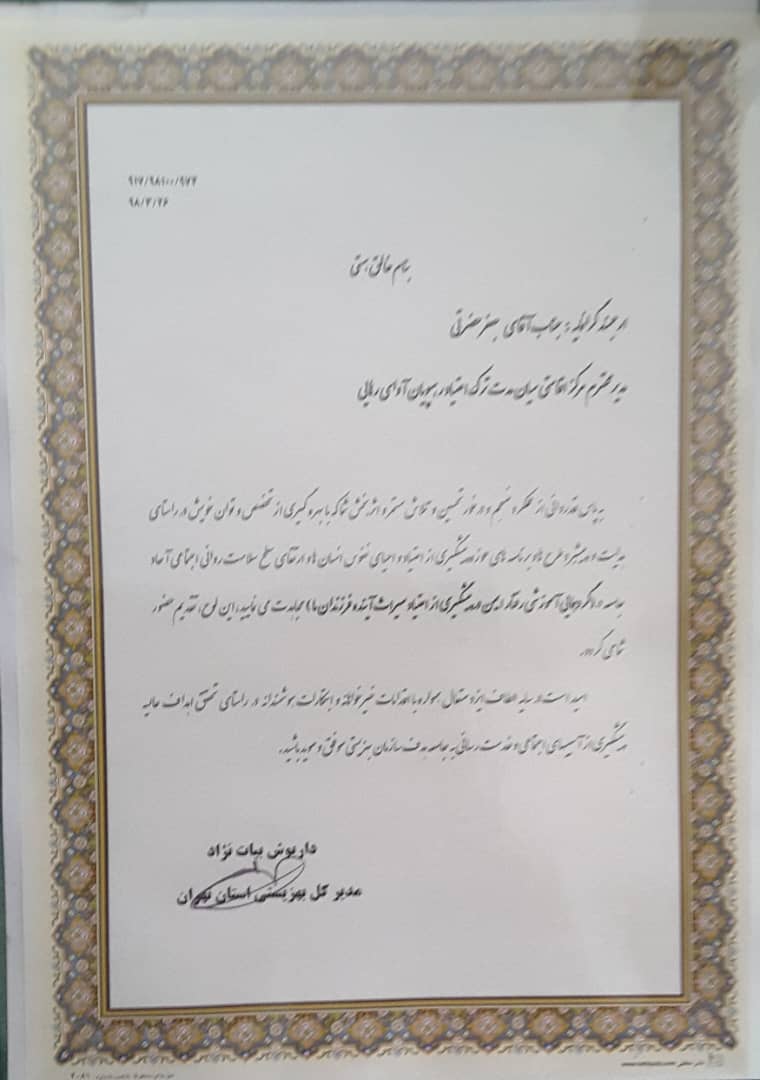 ۹۱۷/۹۸۱۰۰/۹۷۴
۹۸/۳/۲۶
بنام خالق هستی
ارجمند گرامی: جناب آقای جعفر حضرتی
مدیر محترم مرکز اقامتی میان مدت ترک اعتیاد رهپویان آوای رهایی
به پاس قدردانی از عملکرد منسجم و درخور تحسین و تلاش مستمر و اثربخش شما که با بهره گیری از تخصص و توان خویش در راستای
هدایت و پیشبرد طرح ها و برنامه های حوزه پیشگیری از اعتیاد و احیای نفوس انسان ها و ارتقای سطح سلامت روانی اجتماعی آحاد
جامعه در (گردهمایی آموزشی رفتار ایمن در پیشگیری از اعتیاد میراث آینده فرزندان ما) مجاهدت می نمایید، این لوح، تقدیم حضور
شما می گردد.
امید است در سایه الطاف ایزد متعال، همواره با اقدامات خیرخواهانه و ابتکارات هوشمندانه در راستای تحقق اهداف عالیه
پیشگیری از آسیبهای اجتماعی و خدمت رسانی به جامعه هدف سازمان بهزیستی موفق و موید باشید.
داریوش بیات نژاد
مدیر کل بهزیستی استان تهران